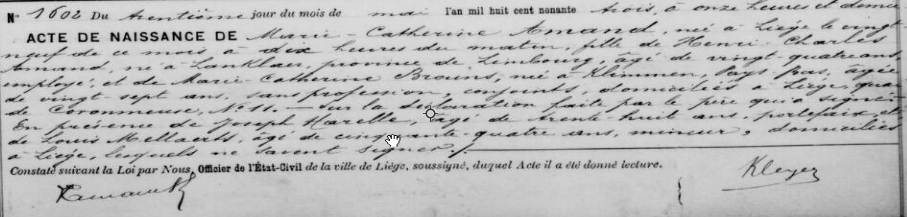 N° 1602 Du trentième jour du mois de mai l'an mil huit cent nonante trois, à onze heures et demie
ACTE DE NAISSANCE DE Marie-Catherine Amand, née à Liège le vingt
neuf de ce mois à dix heures du matin, fille de Henri Charles
Amand, né à Lanklaer, province de Limbourg, âgé de vingt-quatre ans,
employé, et de Marie-Catherine Brouns, née à Klimmen, Pays pas, âgée
de vingt-sept ans, sans profession, conjoints, domiciliés à Liège, quai
de Coronmeuse, N° 11. — Sur la déclaration faite par le père qui a signé.
En présence de Joseph Marelle, âgé de trente-huit ans, portefaix et
de Louis Mellaerts, âgé de cinquante-quatre ans, mineur, domiciliés
à Liège, lesquels ne savent signer.
Constaté suivant la Loi par Nous, Officier de l'État-Civil de la ville de Liège, soussigné, duquel Acte il a été donné lecture.
Kleyer